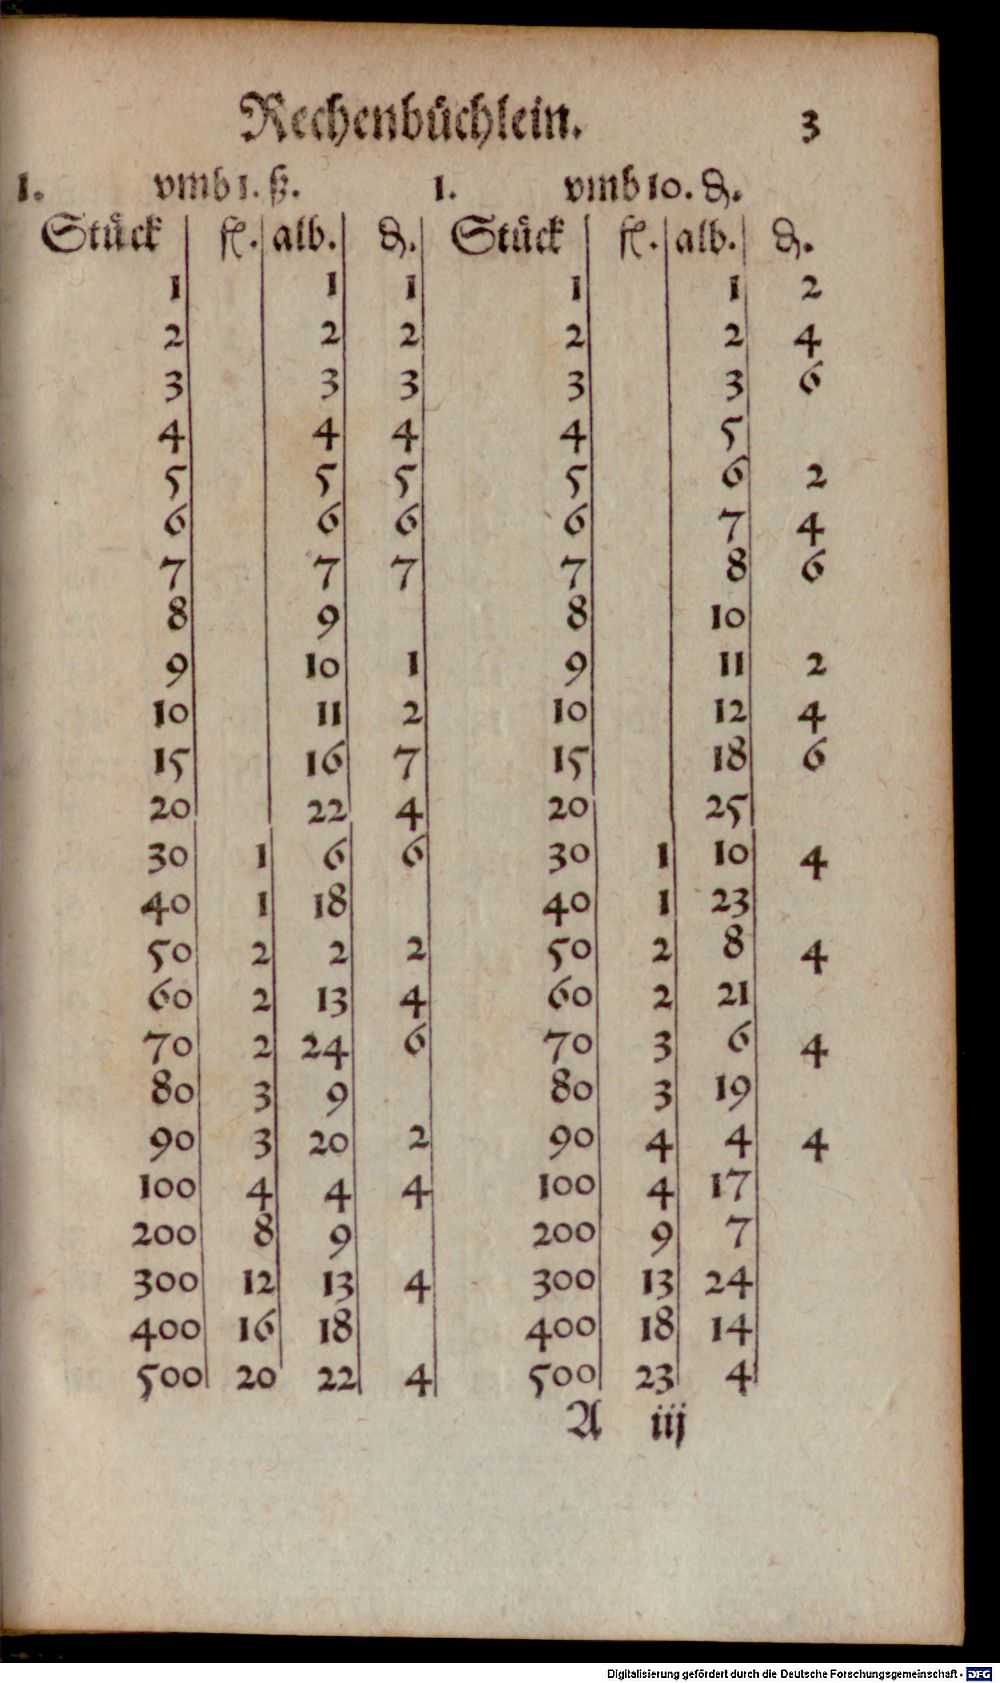 Rechenbüchlein. 3
1. vmb 1. ß. 1. vmb 10. ₰.
Stück fl. alb. ₰. Stück fl. alb. ₰.
1 1 1 1 1 2
2 2 2 2 2 4
3 3 3 3 3 6
4 4 4 4 5
5 5 5 5 6 2
6 6 6 6 7 4
7 7 7 7 8 6
8 9 8 10
9 10 1 9 11 2
10 11 2 10 12 4
15 16 7 15 18 6
20 22 4 20 25
30 1 6 6 30 1 10 4
40 1 18 40 1 23
50 2 2 2 50 2 8 4
60 2 13 4 60 2 21
70 2 24 6 70 3 6 4
80 3 9 80 3 19
90 3 20 2 90 4 4 4
100 4 4 4 100 4 17
200 8 9 200 9 7
300 12 13 4 300 13 24
400 16 18 400 18 14
500 20 22 4 500 23 4
A iij
Digitalisierung gefördert durch die Deutsche Forschungsgemeinschaft - DFG